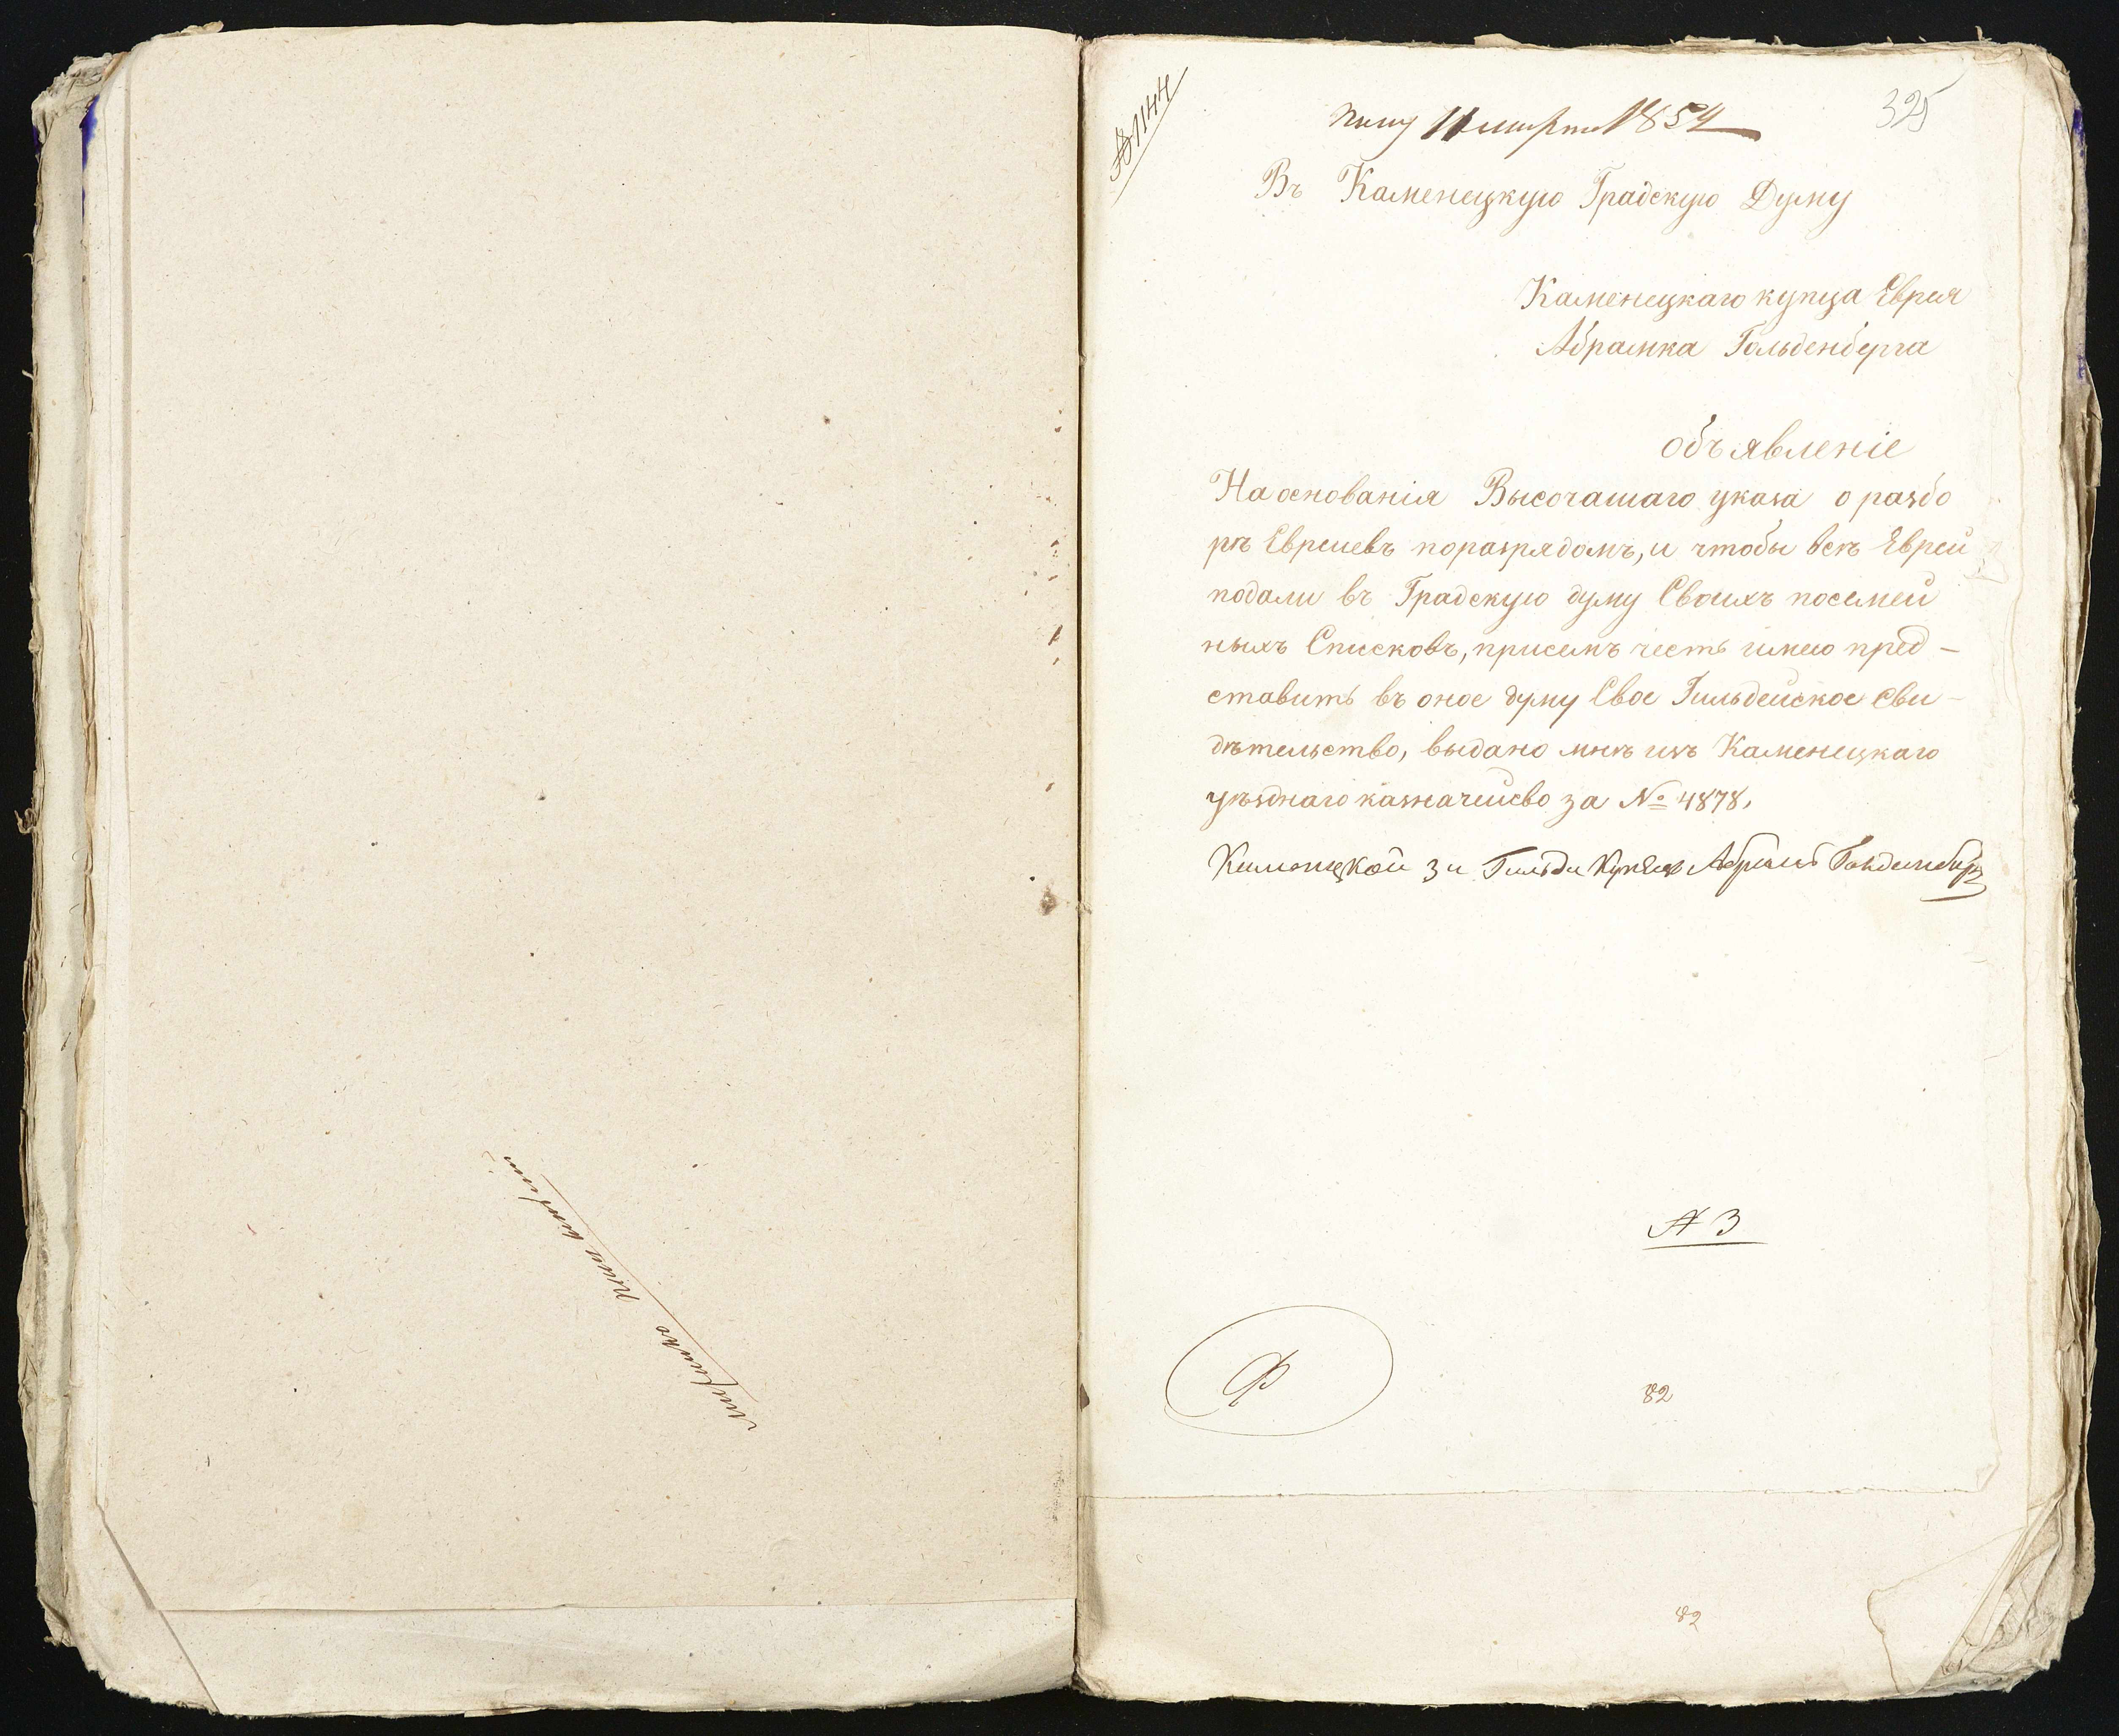 № 1144
325
11 марта 1854
Въ Каменецкую Градскую Думу
Каменецкаго купца Еврея
Абрамка Гольденберга
объявленіе
На основанія Высочашаго указа о разбо
рѣ Евреиевъ поразрядомъ, и чтобы всѣ Евреи
подали въ Градскую думу Своихъ посемей
ныхъ Списковъ, присемъ честь имею пред-
ставить въ оное думу Свое Гильдейское Сви-
дѣтельство, выдано мнѣ изъ Каменецкаго
уѣзднаго казначейсво за № 4878,
Каменецкой 3и Гильди Купецъ Абрамъ Голденберг
№ 3
82
82